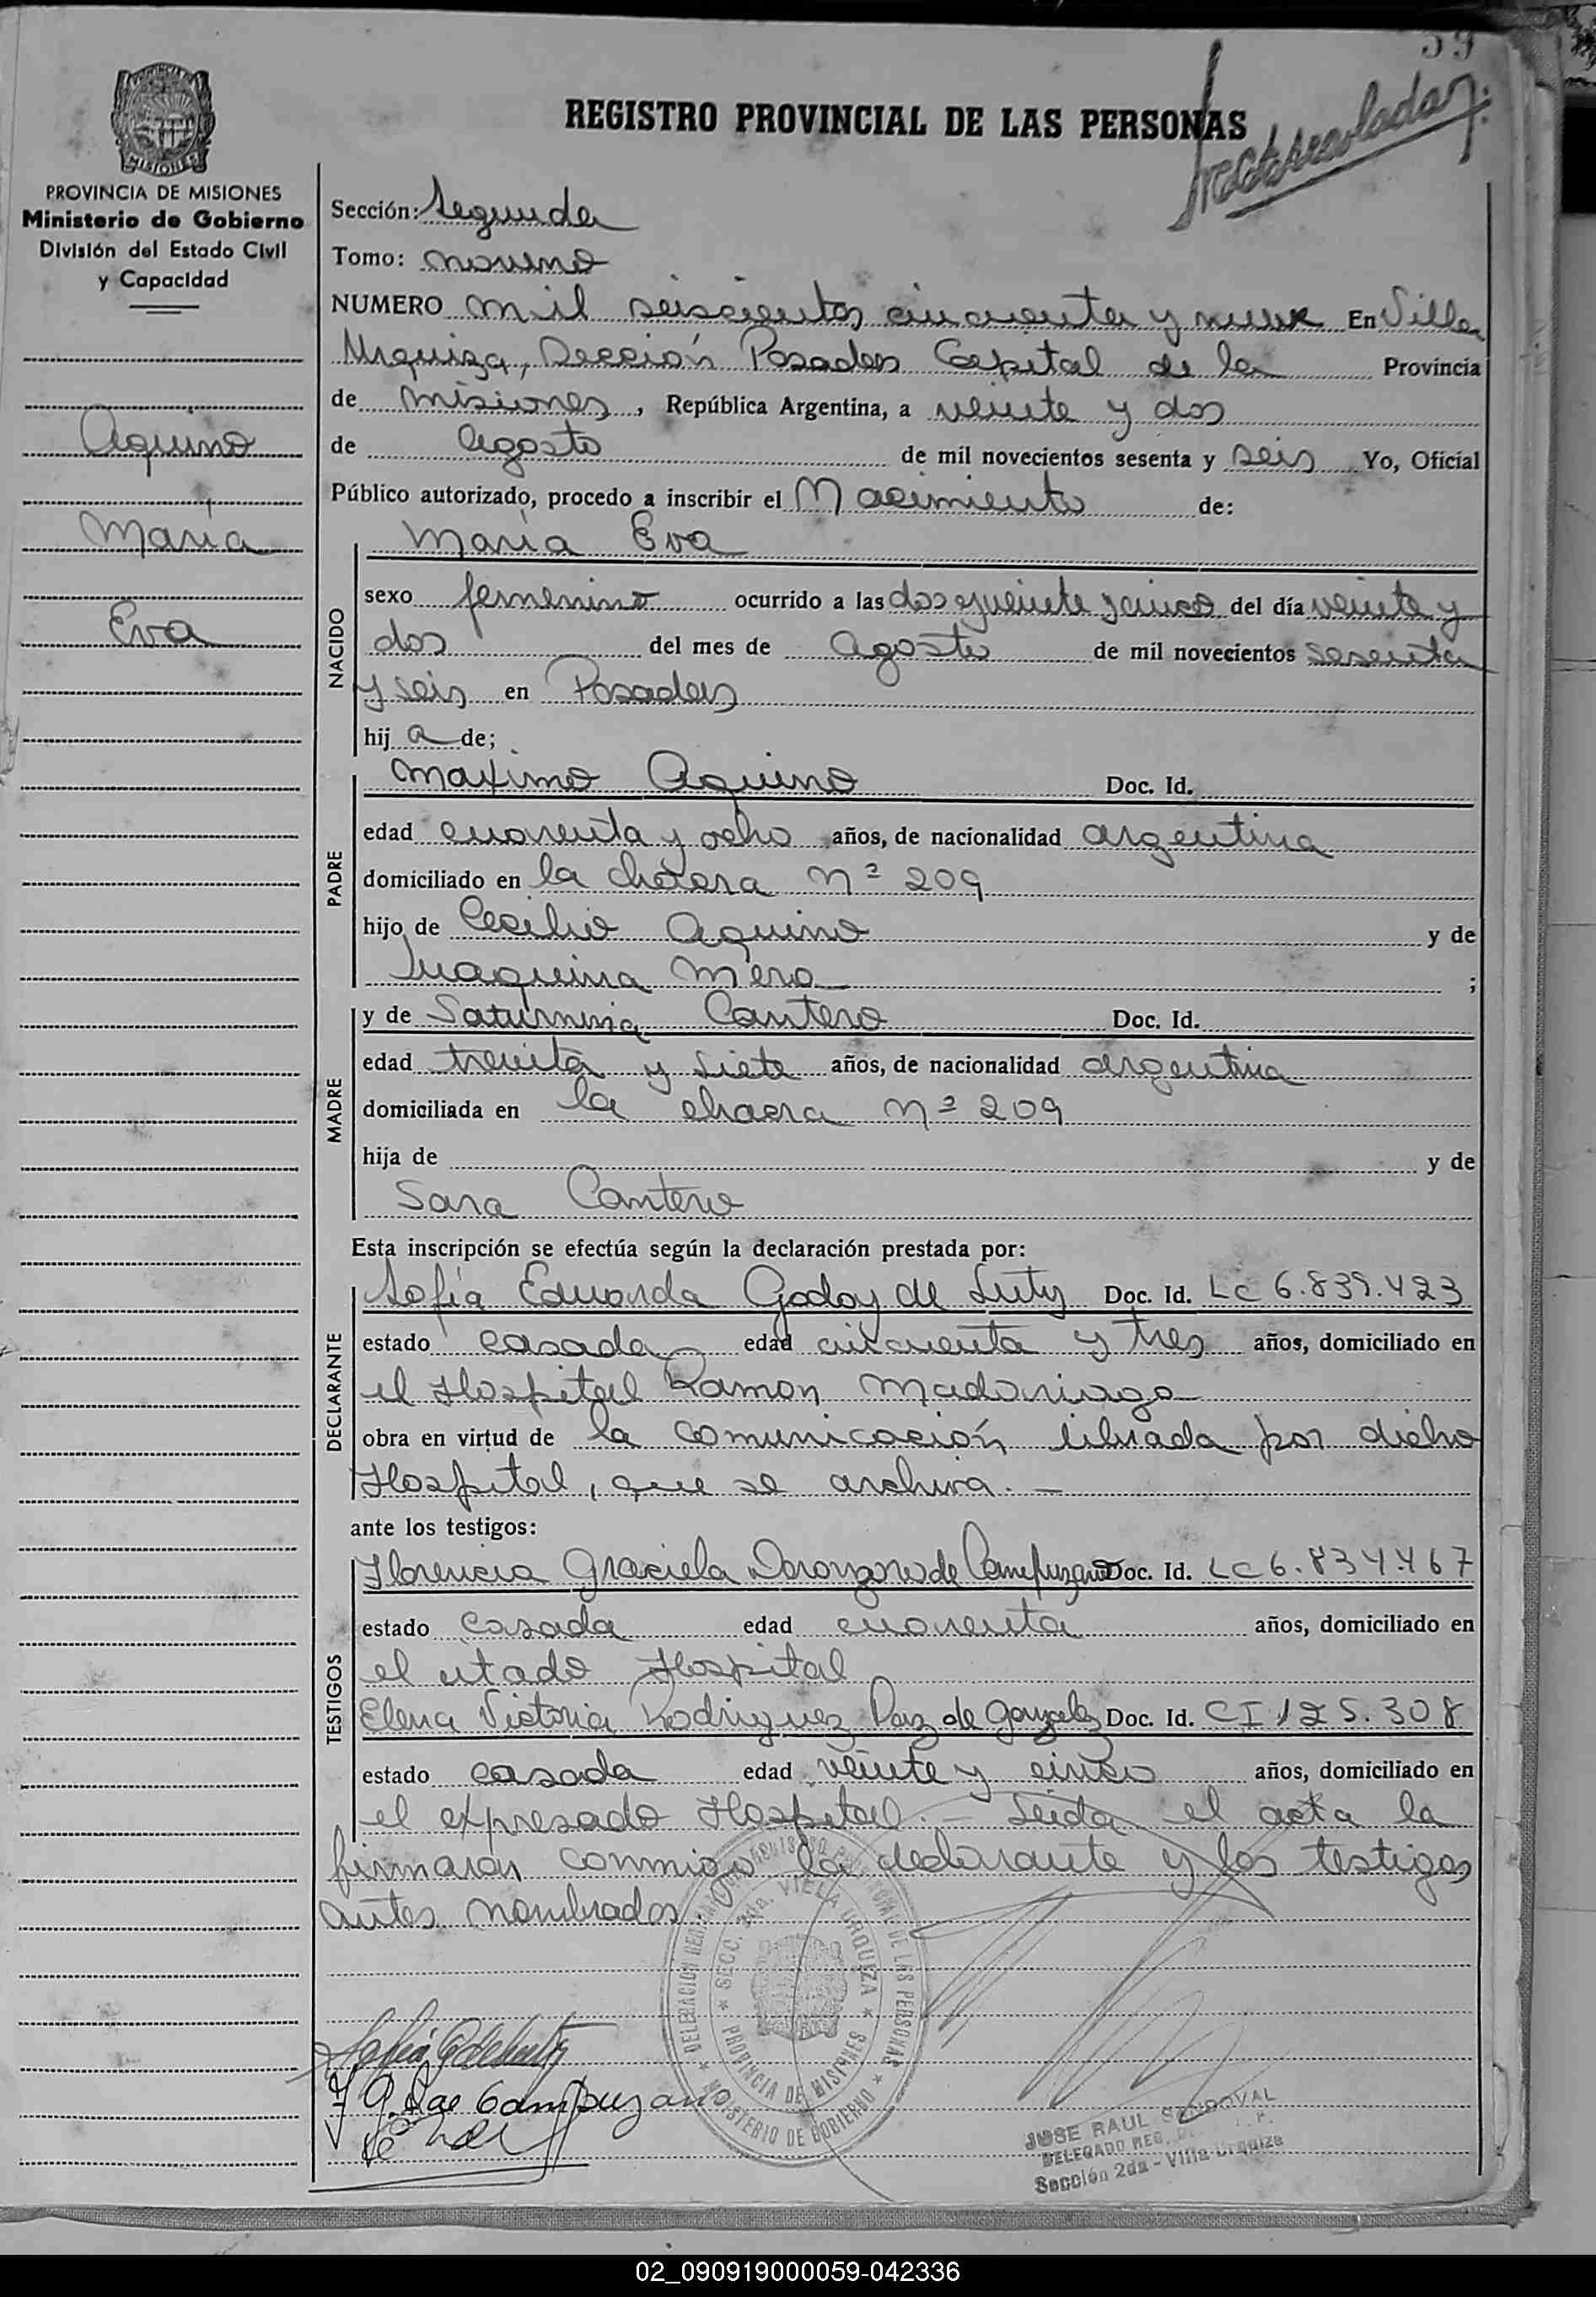 59
REGISTRO PROVINCIAL DE LAS PERSONAS
MISIONES
PROVINCIA DE MISIONES
Ministerio de Gobierno
División del Estado Civil
y Capacidad
Aquino
María
Eva
Sección: Segunda
Tomo: noveno
NUMERO mil seiscientos cincuenta y nueve En Villa
Urquiza, Sección Posadas Capital de la Provincia
de misiones, República Argentina, a veinte y dos
de agosto de mil novecientos sesenta y seis Yo, Oficial
Público autorizado, procedo a inscribir el Nacimiento de:
NACIDO
María Eva
sexo femenino ocurrido a las dos y veinte y cinco del día veinte y
dos del mes de agosto de mil novecientos sesenta
y seis en Posadas
hij a de;
PADRE
Maximo Aquino Doc. Id.
edad cuarenta y ocho años, de nacionalidad argentina
domiciliado en la chacra nº 209
hijo de Cecilio Aquino y de
Juaquina Mera ;
MADRE
y de Saturnina Cantero Doc. Id.
edad treinta y siete años, de nacionalidad argentina
domiciliada en la chacra nº 209
hija de y de
Sara Cantero
Esta inscripción se efectúa según la declaración prestada por:
DECLARANTE
Sofía Eduarda Godoy de Luty Doc. Id. LC 6.839.423
estado casada edad cincuenta y tres años, domiciliado en
el Hospital Ramon Madariaga
obra en virtud de la comunicación librada por dicho
Hospital, que se archiva. —
ante los testigos:
TESTIGOS
Florencia Graciela de Campuzano Doc. Id. LC 6.834.467
estado casada edad cuarenta años, domiciliado en
el citado Hospital
Elena Victoria Rodriguez Paz de Gonzalez Doc. Id. CI 125.308
estado casada edad veinte y cinco años, domiciliado en
el expresado Hospital. — Leida el acta la
firmarán conmigo la declarante y los testigos
antes nombrados.
SECC. 2da. VILLA URQUIZA
PROVINCIA DE MISIONES
MINISTERIO DE GOBIERNO
Campuzano
JOSE RAUL SANDOVAL
DELEGADO REG.
Sección 2da - Villa Urquiza
02_090919000059-042336